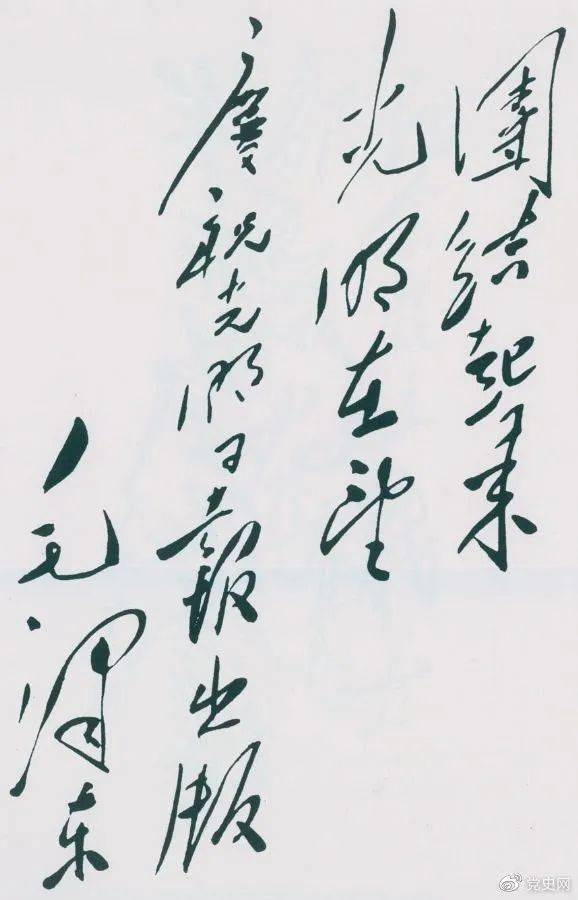 團結起來
光明在望
慶祝光明日報出版
毛澤东
@党史网